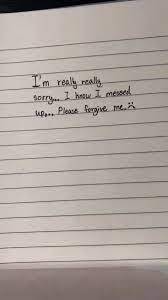 I'm really really
sorry... I know I messed
up... Please forgive me.